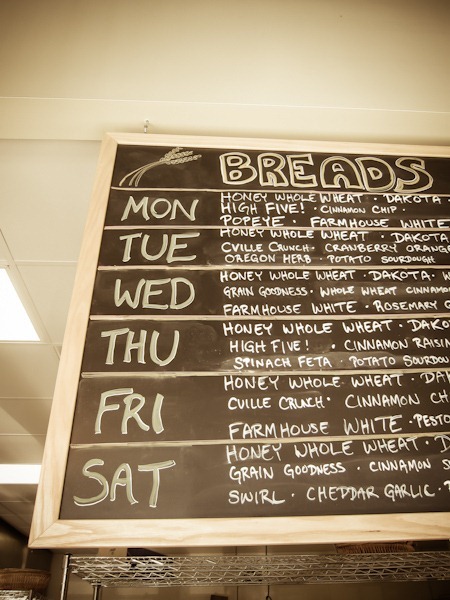 BREADS
MON
HONEY WHOLE WHEAT · DAKOTA ·
HIGH FIVE! · CINNAMON CHIP ·
POPEYE · FARMHOUSE WHITE
TUE
HONEY WHOLE WHEAT · DAKOTA
CVILLE CRUNCH · CRANBERRY ORANGE
OREGON HERB · POTATO SOURDOUGH
WED
HONEY WHOLE WHEAT · DAKOTA ·
GRAIN GOODNESS · WHOLE WHEAT CINNAMON
FARMHOUSE WHITE · ROSEMARY
THU
HONEY WHOLE WHEAT · DAKO
HIGH FIVE! · CINNAMON RAISIN
SPINACH FETA · POTATO SOURDOU
FRI
HONEY WHOLE WHEAT · DA
CVILLE CRUNCH · CINNAMON CH
FARMHOUSE WHITE · PESTO
SAT
HONEY WHOLE WHEAT · D
GRAIN GOODNESS · CINNAMON S
SWIRL · CHEDDAR GARLIC ·